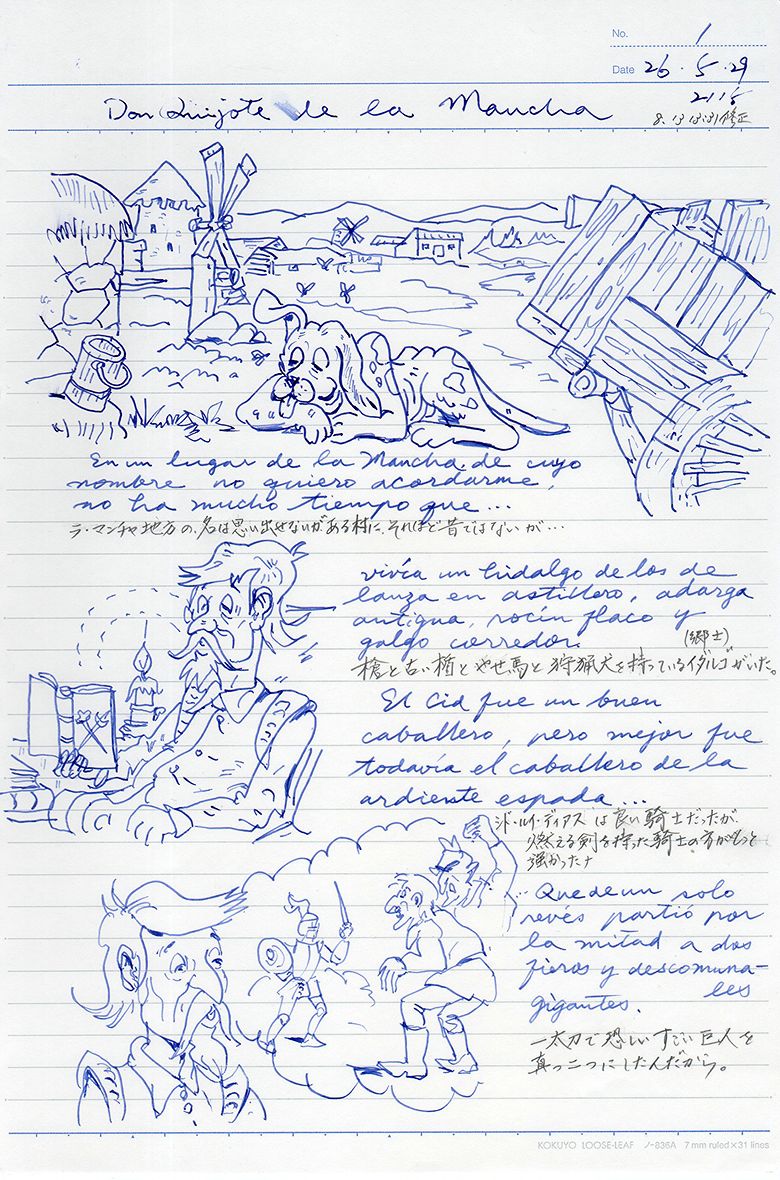 No. 1
Date 26・5・29
2115
8.13 13:31修正
Don Quijote de la Mancha
En un lugar de la Mancha de cuyo
nombre no quiero acordarme,
no ha mucho tiempo que...
ラ・マンチャ地方の、名は思い出せないがある村に、それほど昔ではないが…
vivía un hidalgo de los de
lanza en astillero, adarga
antigua, rocín flaco y
galgo corredor.
(郷士)
槍と古い楯とやせ馬と狩猟犬を持っているイダルゴがいた。
El Cid fue un buen
caballero, pero mejor fue
todavía el caballero de la
ardiente espada...
シド・ルイ・ディアスは良い騎士だったが、
燃える剣を持った騎士の方がもっと
強かったナ
...Que de un solo
revés partió por
la mitad a dos
fieros y descomuna-
les
gigantes.
一太刀で恐しいすごい巨人を
真っ二つにしたんだから。
KOKUYO LOOSE-LEAF ノ-836A 7 mm ruled×31 lines